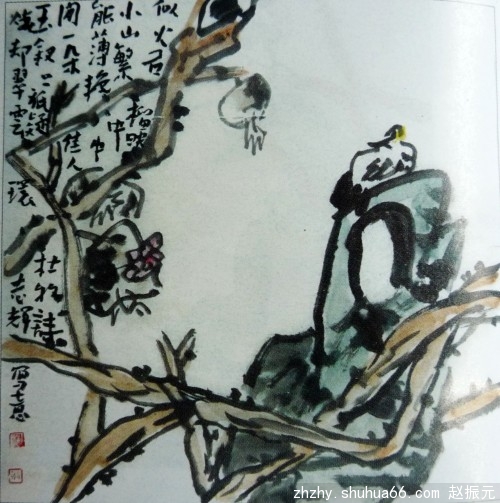 似火石榴映
小山繁中
能薄艳中
闲一朵佳人
玉钗上祇疑
烧却翠雲環
杜牧詩
志輝
写意
zhzhy.shuhua66.com 赵振元